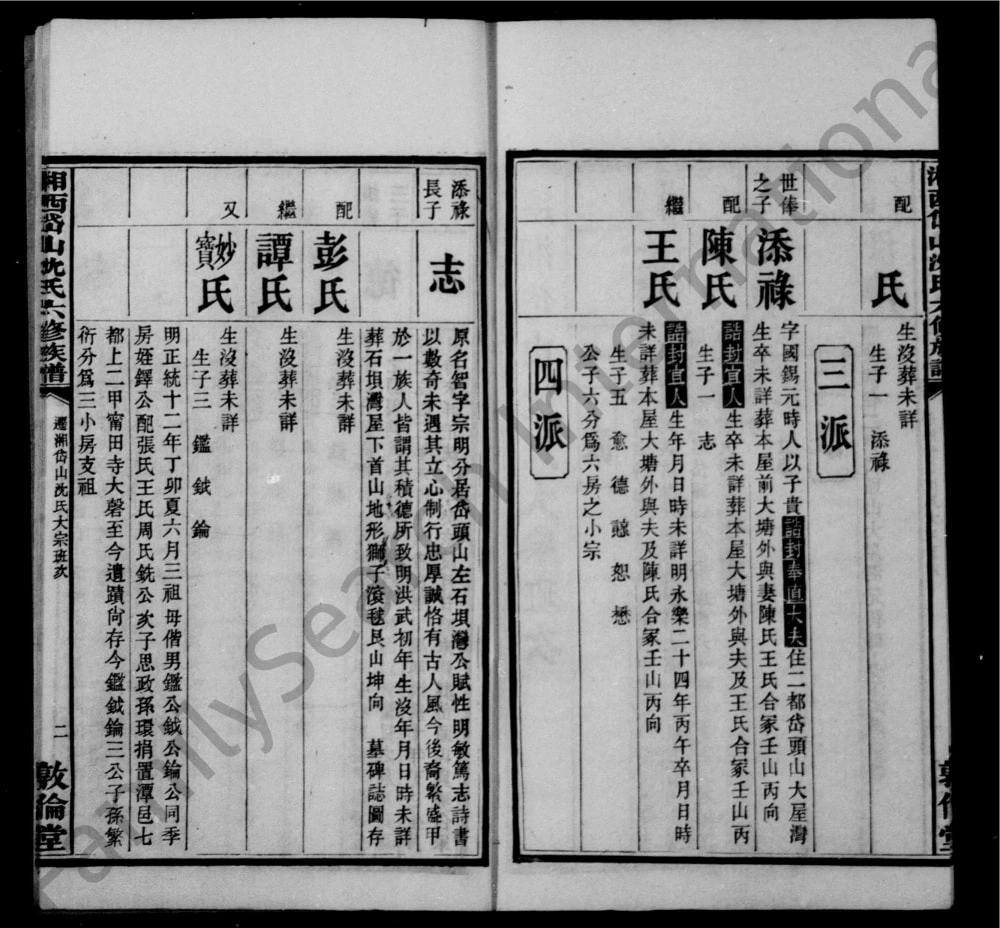 配
氏
生沒葬未詳
生子一 添祿
三派
世俸之子
添祿
字國錫元時人以子貴誥封奉直大夫住二都岱頭山大屋灣
生卒未詳葬本屋前大塘外與妻陳氏王氏合冢壬山丙向
配
陳氏
誥封宜人生卒未詳葬本屋大塘外與夫及王氏合冢壬山丙
生子一 志
繼
王氏
誥封宜人生年月日時未詳明永樂二十四年丙午卒月日時
未詳葬本屋大塘外與夫及陳氏合冢壬山丙向
生子五 愈 德 諒 恕 懋
公子六分為六房之小宗
四派
添祿長子
志
原名智字宗明分居岱頭山左石垻灣公賦性明敏篤志詩書
以數奇未遇其立心制行忠厚誠恪有古人風今後裔繁盛甲
於一族人皆謂其積德所致明洪武初年生沒年月日時未詳
葬石垻灣屋下首山地形獅子滾毬艮山坤向 墓碑誌圖存
配
彭氏
生沒葬未詳
繼
譚氏
生沒葬未詳
又
妙寶氏
生沒葬未詳
生子三 鑑 鉞 錀
明正統十二年丁卯夏六月三祖母偕男鑑公鉞公錀公同季
房姪鐸公配張氏王氏周氏銑公次子思政孫環捐置潭邑七
都上二甲甯田寺大磬至今遺蹟尙存今鑑鉞錀三公子孫繁
衍分爲三小房支祖
湘西岱山沈氏六修族譜
遷湘岱山沈氏大宗班次
二
敦倫堂
FamilySearch International